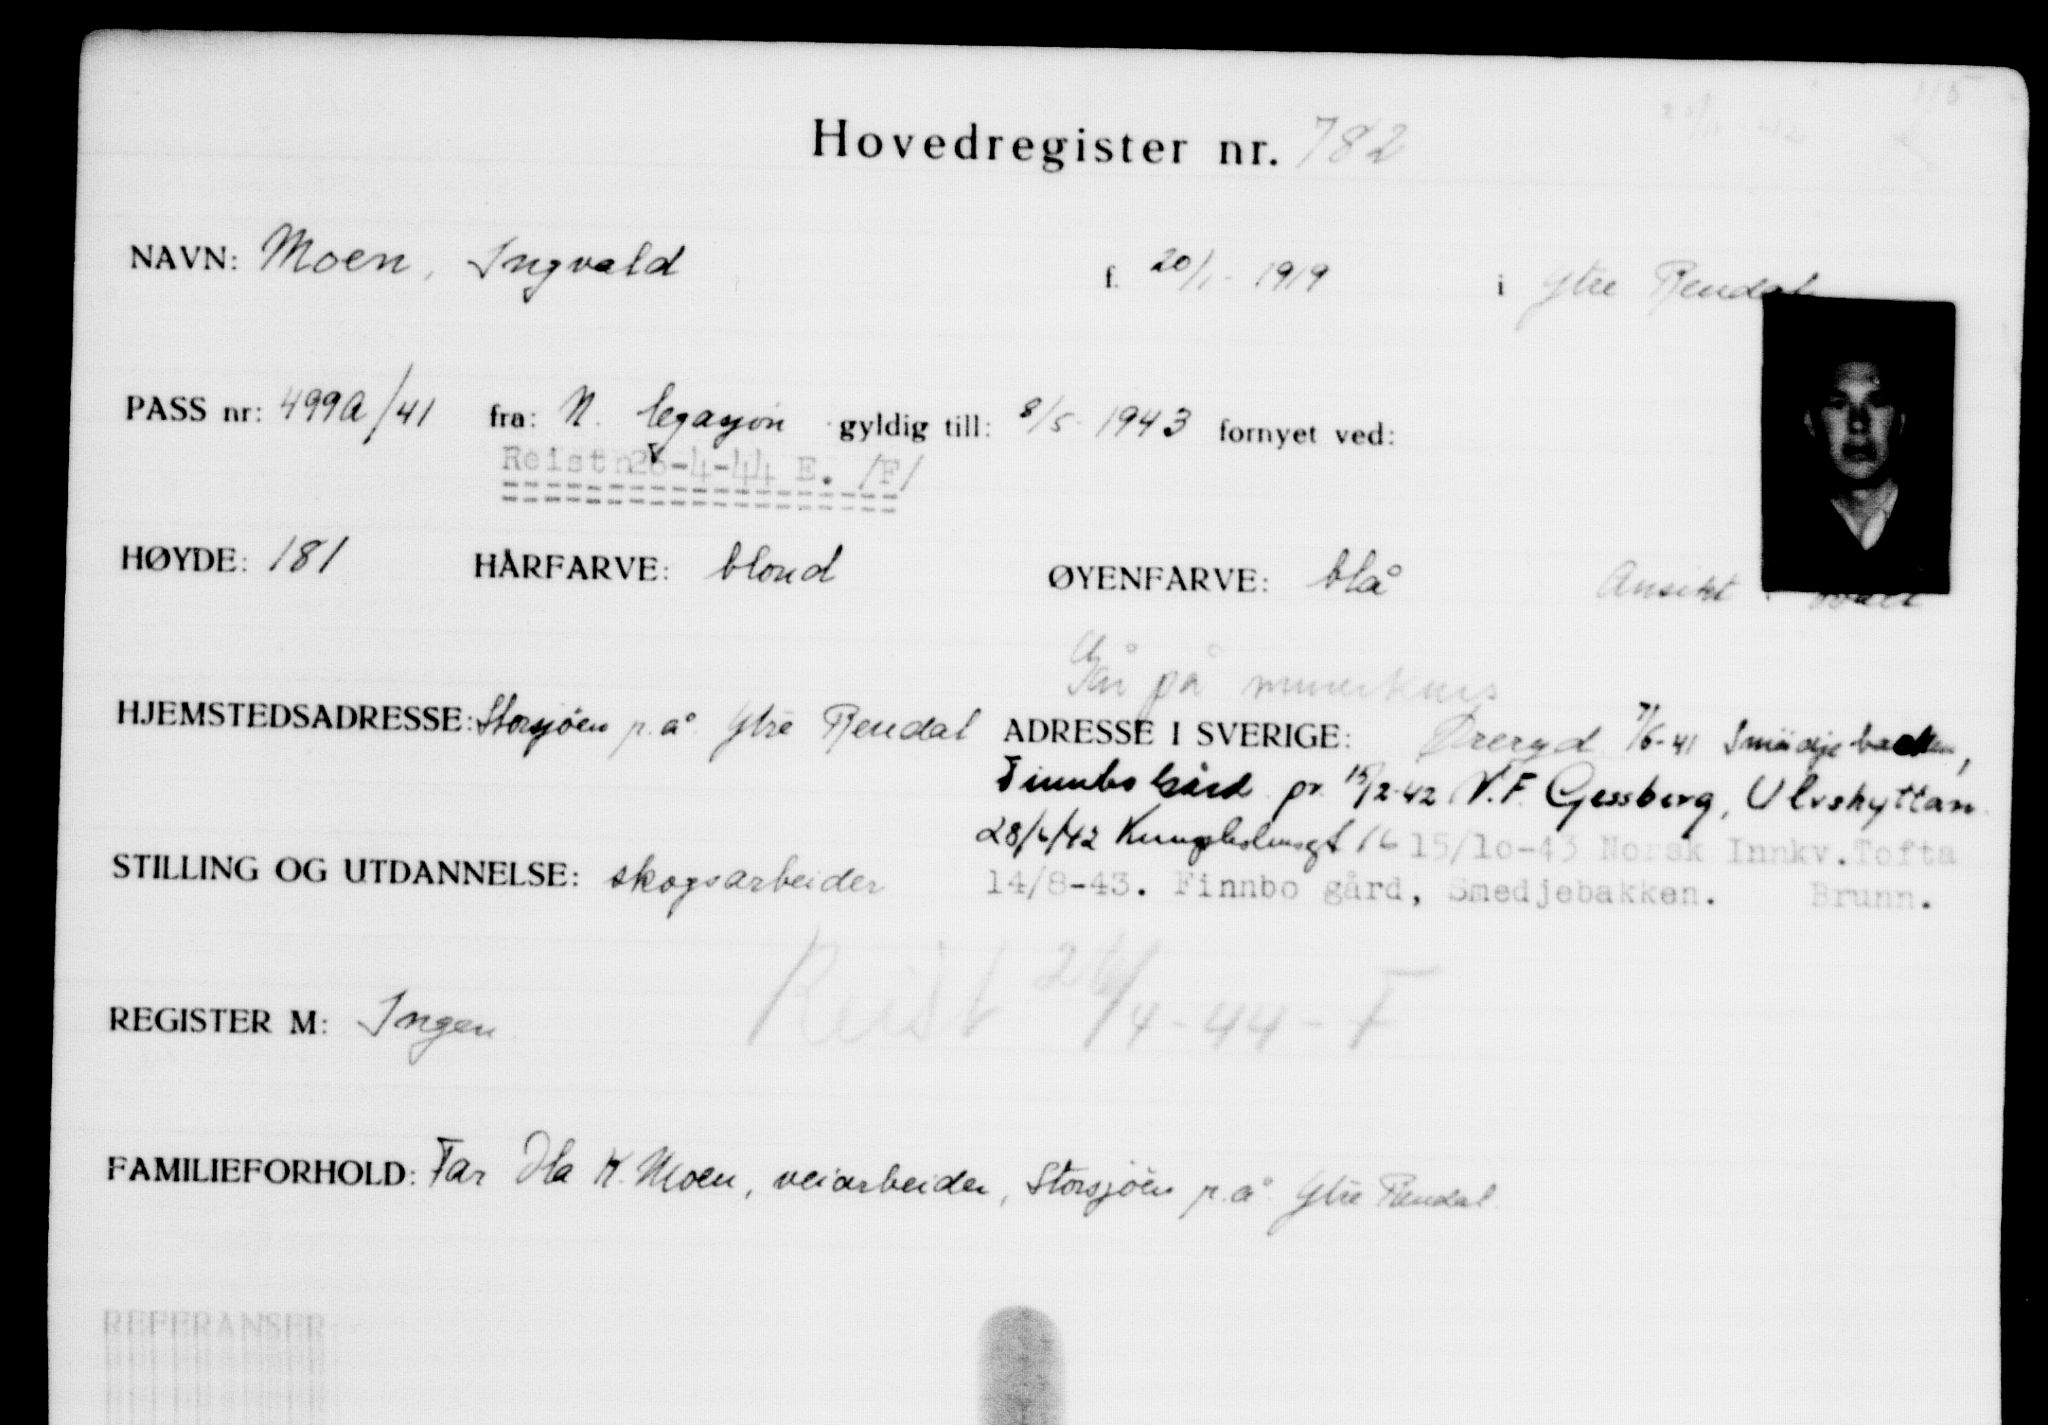 Hovedregister nr. 782
NAVN: Moen, Ingvald f. 20/1-1919 i Ytre Rendal
PASS nr: 499A/41 fra: N. legasjon gyldig till: 8/5-1943 fornyet ved:
Reist 26-4-44 E. /F/
HØYDE: 181 HÅRFARVE: blond ØYENFARVE: blå Ansikt
Går på
HJEMSTEDSADRESSE: Storsjøen p.å. Ytre Rendal ADRESSE I SVERIGE: Øreryd 7/6-41 Smedjebacken,
Finnbo Gård pr. 15/2-42 V.F. Gessberg, Ulvshyttan
28/6/42 Kungsholmsgt 16 15/10-43 Norsk Innkv. Tofta
STILLING OG UTDANNELSE: skogsarbeider 14/8-43. Finnbo gård, Smedjebakken. Brunn.
Reist 26/4-44-F
REGISTER M: Ingen
FAMILIEFORHOLD: Far Ola K. Moen, veiarbeider, Storsjøen p.å. Ytre Rendal.
REFERANSER